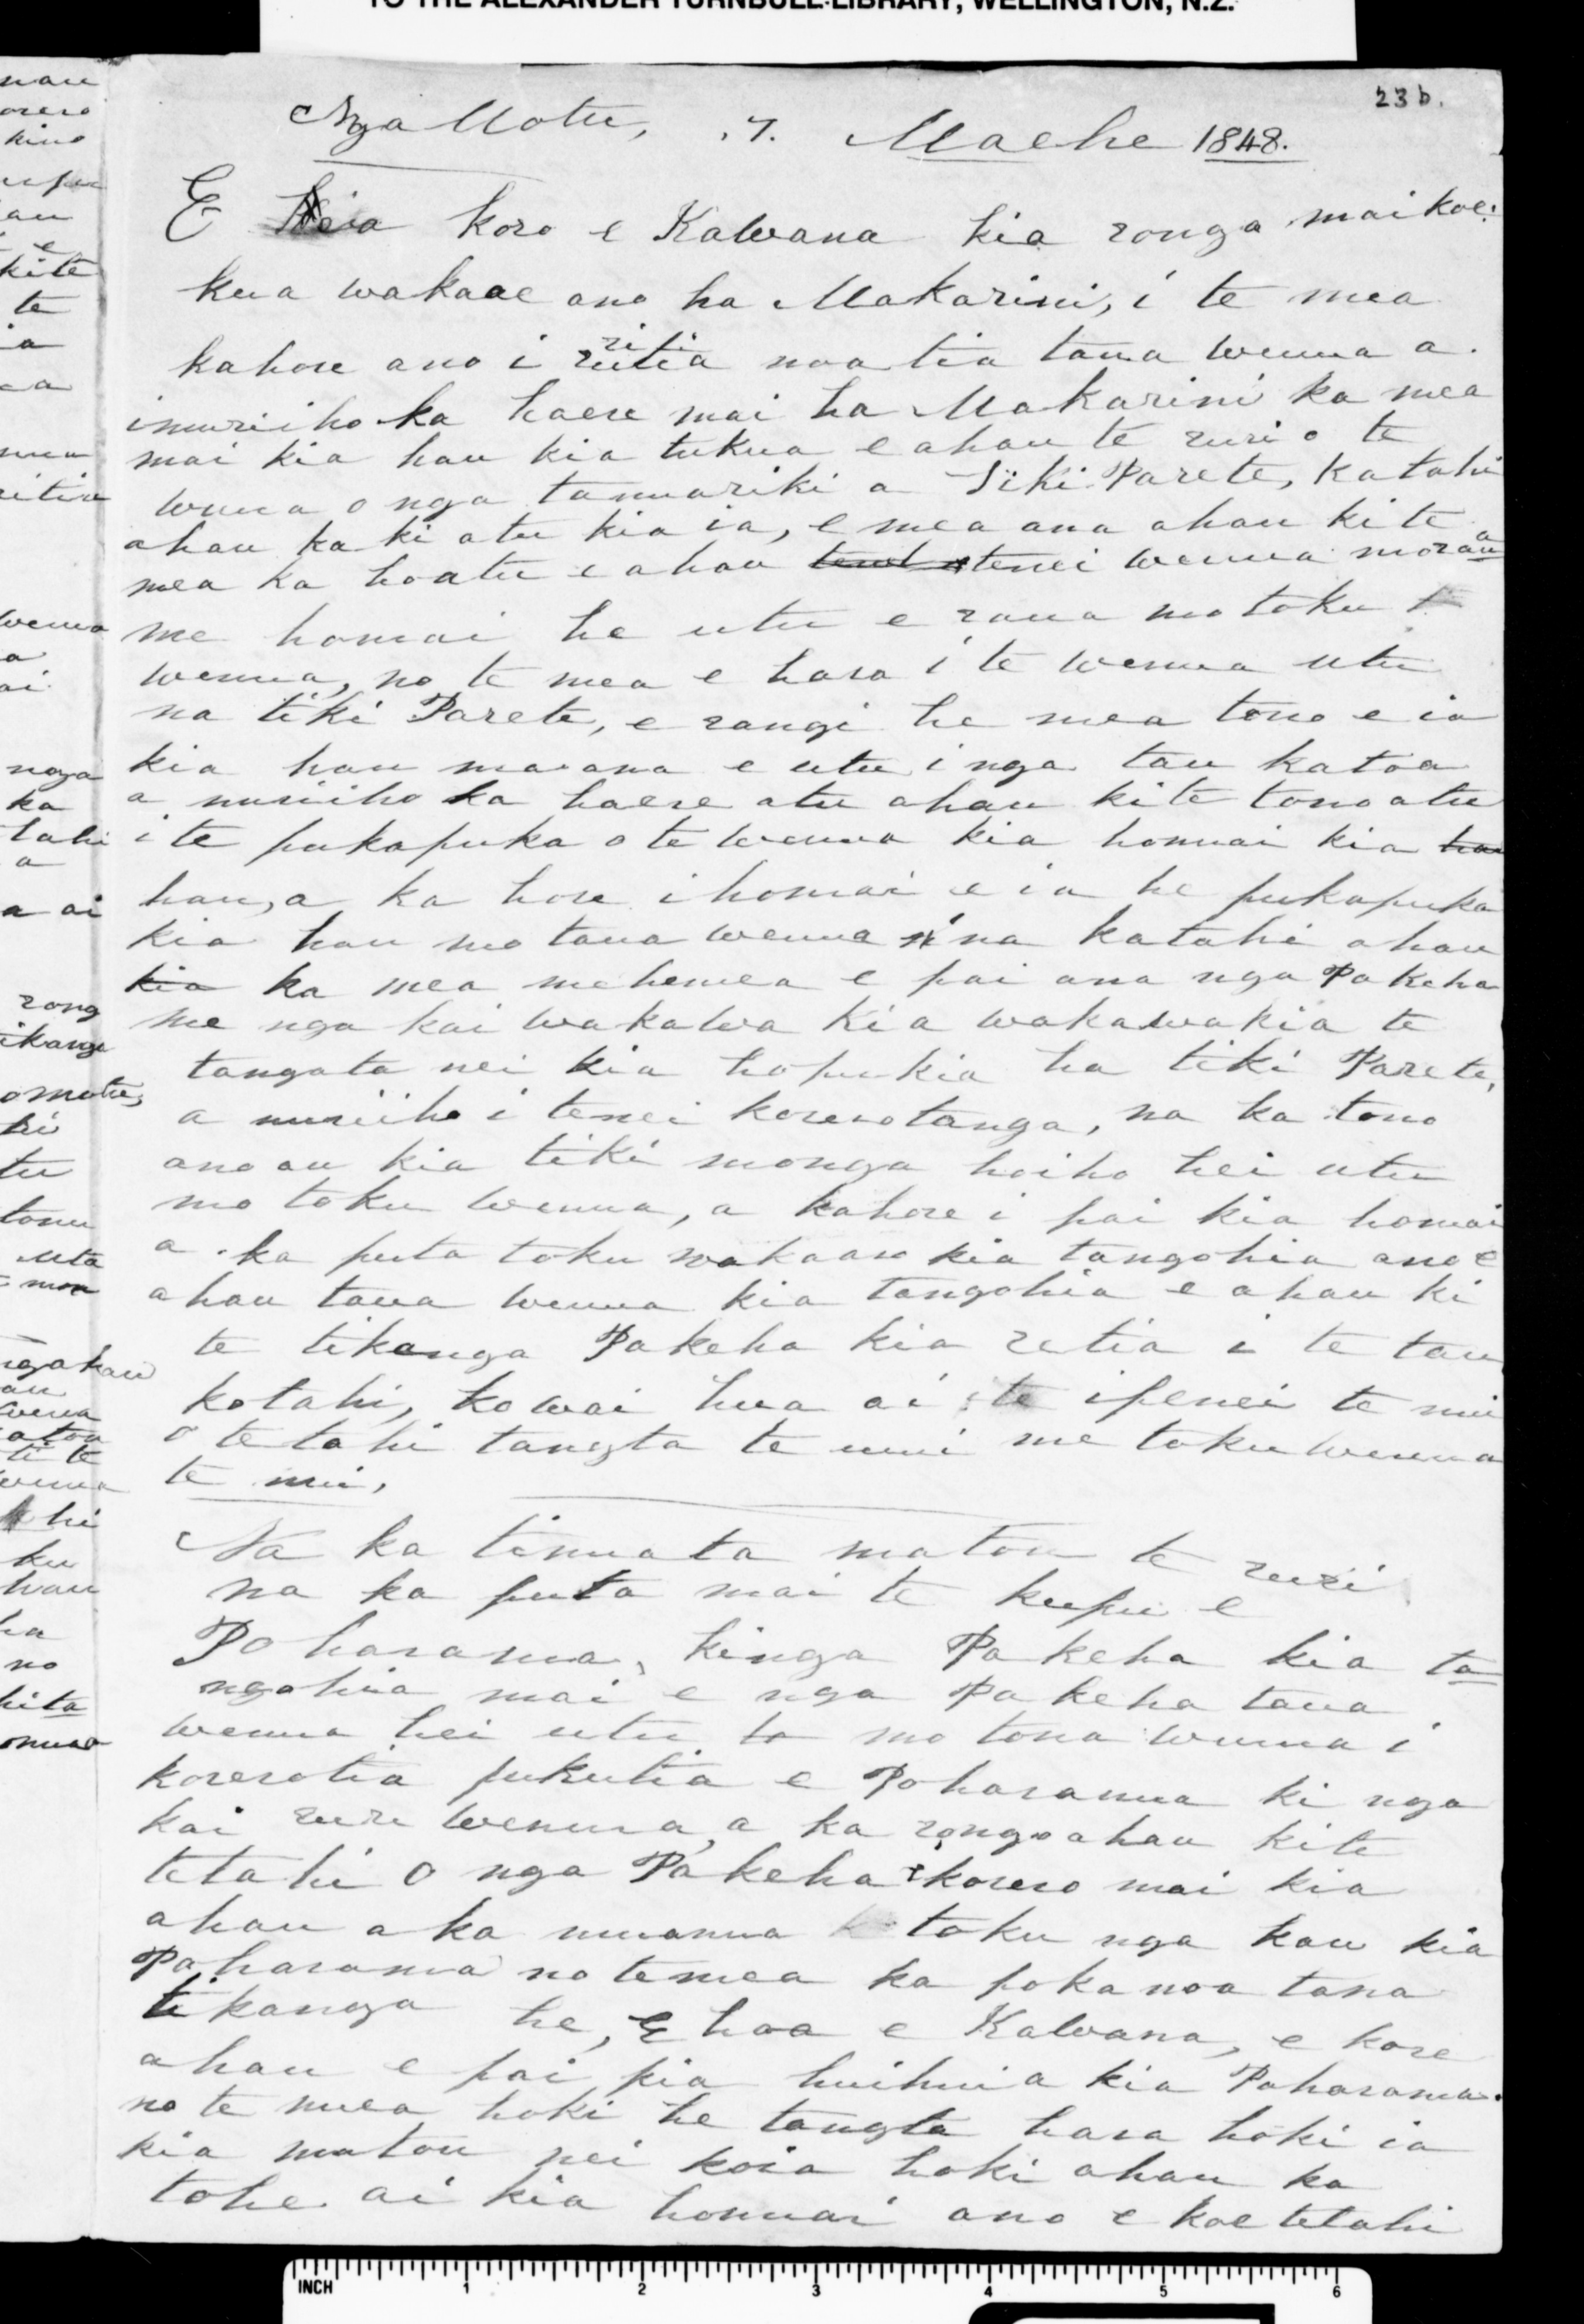 TO THE ALEXANDER TURNBULL LIBRARY, WELLINGTON, N.Z.
23 b.
Nga Motu, 7. Maehe 1848.
E koro e Kawana kia ronga mai koe:
kua wakaae ano ha Makarini, i te mea
kahore ano i ritia noa tia taua wenua a.
imuri iho ka haere mai ha Makarini ka mea
mai kia hau kia tukua e ahau te ruri o te
wenua o nga tamariki a Tiki Parete, katahi
ahau ka ki atu kia ia, e mea ana ahau ki te
mea ka hoatu e ahau tenei wenua mo raua
me homai he utu e raua mo toku
wenua, no te mea e hara i te wenua utu
na tiki Parete, e rangi he mea tono e ia
kia hau maana e utu i nga tau katoa
a muriiho ka haere atu ahau ki te tono atu
i te pukapuka o te wenua kia homai kia hau
hau, a ka hore i homai e ia he pukapuka
kia hau mo taua wenua na katahi ahau
kia ka mea mehemea e pai ana nga Pakeha
me nga kai wakawa kia wakawakia te
tangata nei kia hopukia ha tiki Parete,
a muriiho i tenei korerotanga, na ka tono
ano au kia tiki monga hoiho hei utu
mo toku wenua, a kahore i pai kia homai
a ka puta toku wakaaro kia tangohia ano e
ahau taua wenua kia tangohia e ahau ki
te tikanga Pakeha kia retia i te tau
kotahi, ko wai hua ai te ipenei te nui
o te tahi tangta te nui me toku wenua
te nui,
Na ka timata matou te ruri
na ka puta mai te kupu e
Poharama, kinga Pakeha kia ta
ngohia mai e nga Pakeha taua
wenua hei utu to mo tona wenua i
korerotia pukutia e Poharama ki nga
kai ruri wenua, a ka rongo ahau kite
tetahi o nga Pakeha korero mai kia
ahau a ka mamua toku nga kau kia
Poharama no temea ka poka noa tana
tikanga he, E hoa e Kawana, e kore
ahau e pai kia huihuia kia Poharama.
no te mea hoki he tangta hara hoki ia
kia matou nei koia hoki ahau ka
tohe ai kia homai ano e koe tetahi
INCH 1 2 3 4 5 6